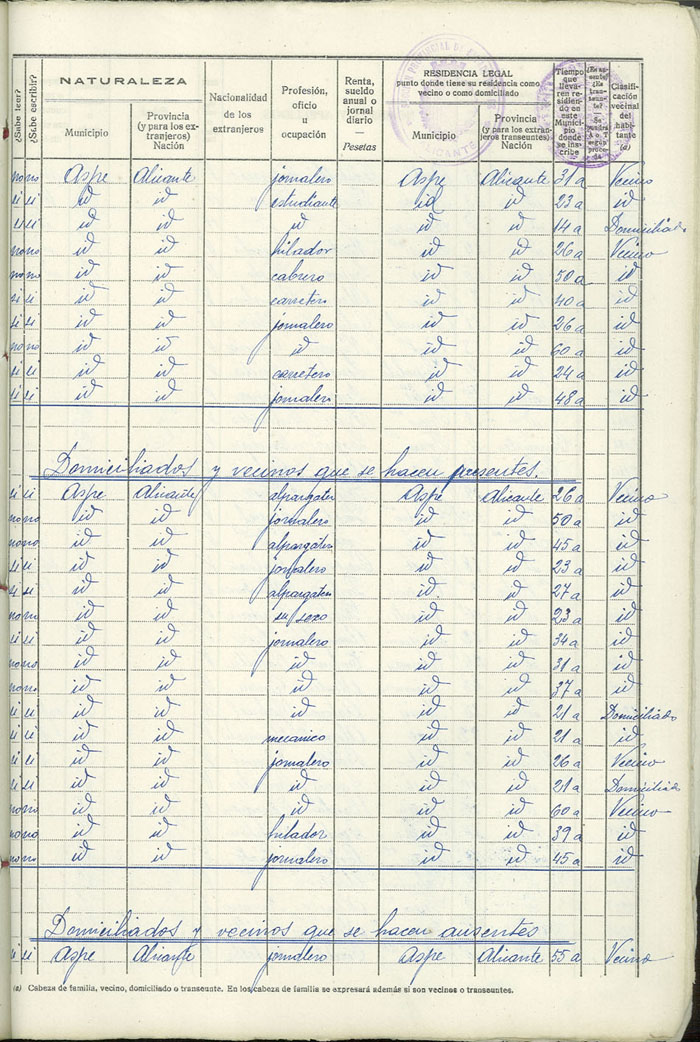 ¿Sabe leer?
¿Sabe escribir?
NATURALEZA
Municipio
Provincia (y para los extranjeros) Nación
Nacionalidad de los extranjeros
Profesión, oficio u ocupación
Renta, sueldo anual o jornal diario — Pesetas
RESIDENCIA LEGAL punto donde tiene su residencia como vecino o como domiciliado
Municipio
Provincia (y para los extranjeros transeuntes) Nación
Tiempo que llevaren residiendo en este Municipio donde se inscribe
Clasificación vecinal del habitante (a)
no no Aspe Alicante jornalero Aspe Alicante 31 a Vecino
si si id id estudiante id id 23 a id
si si id id id id id 14 a Domiciliado
no no id id hilador id id 26 a Vecino
no no id id cabrero id id 50 a id
si si id id carretero id id 40 a id
si si id id jornalero id id 26 a id
no no id id id id id 60 a id
si si id id carretero id id 24 a id
si si id id jornalero id id 48 a id
Domiciliados y vecinos que se hacen presentes.
si si Aspe Alicante alpargater Aspe Alicante 26 a Vecino
no no id id jornalero id id 50 a id
no no id id alpargater id id 45 a id
si si id id jornalero id id 23 a id
si si id id alpargater id id 27 a id
no no id id su sexo id id 23 a id
si si id id jornalero id id 34 a id
no no id id id id id 31 a id
no no id id id id id 37 a id
si si id id id id id 21 a Domiciliado
si si id id mecanico id id 21 a id
si si id id jornalero id id 26 a Vecino
si si id id id id id 21 a Domiciliado
no no id id id id id 60 a Vecino
no no id id hilador id id 39 a id
no no id id jornalero id id 45 a id
Domiciliados y vecinos que se hacen ausentes
si si Aspe Alicante jornalero Aspe Alicante 55 a Vecino
(a) Cabeza de familia, vecino, domiciliado o transeunte. En los cabeza de familia se expresará además si son vecinos o transeuntes.